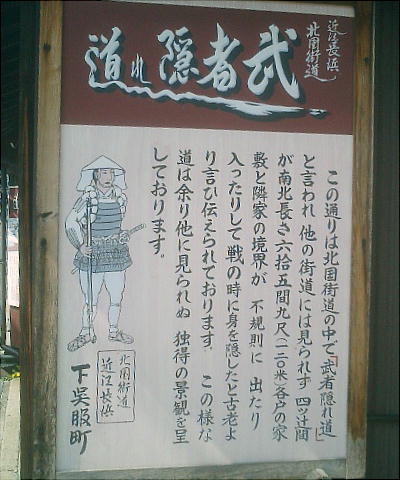 近江長浜
北国街道
武者隠れ道
この通りは北国街道の中で「武者隠れ道」
と言われ 他の街道には見られず 四ツ辻間
が南北長さ六拾五間九尺(一二〇米)各戸の家
敷と隣家の境界が 不規則に 出たり
入ったりして戦の時に身を隠したと古老よ
り言ひ伝えられております この様な
道は余り他に見られぬ 独得の景観を呈
しております。
北国街道
近江長浜
下呉服町